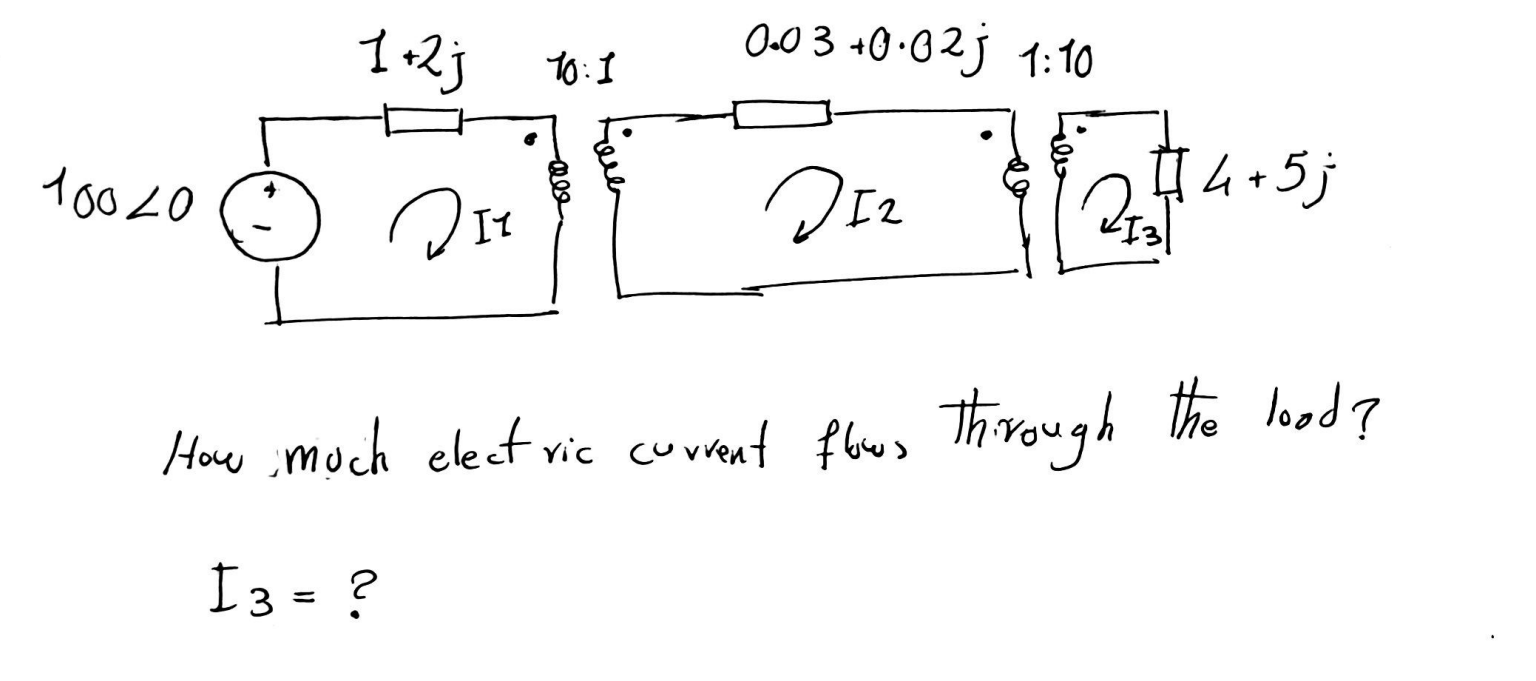 1+2j 10:1 0.03+0.02j 1:10
100∠0 + - I1 I2 I3 4+5j
How much electric current flows through the load?
I3 = ?